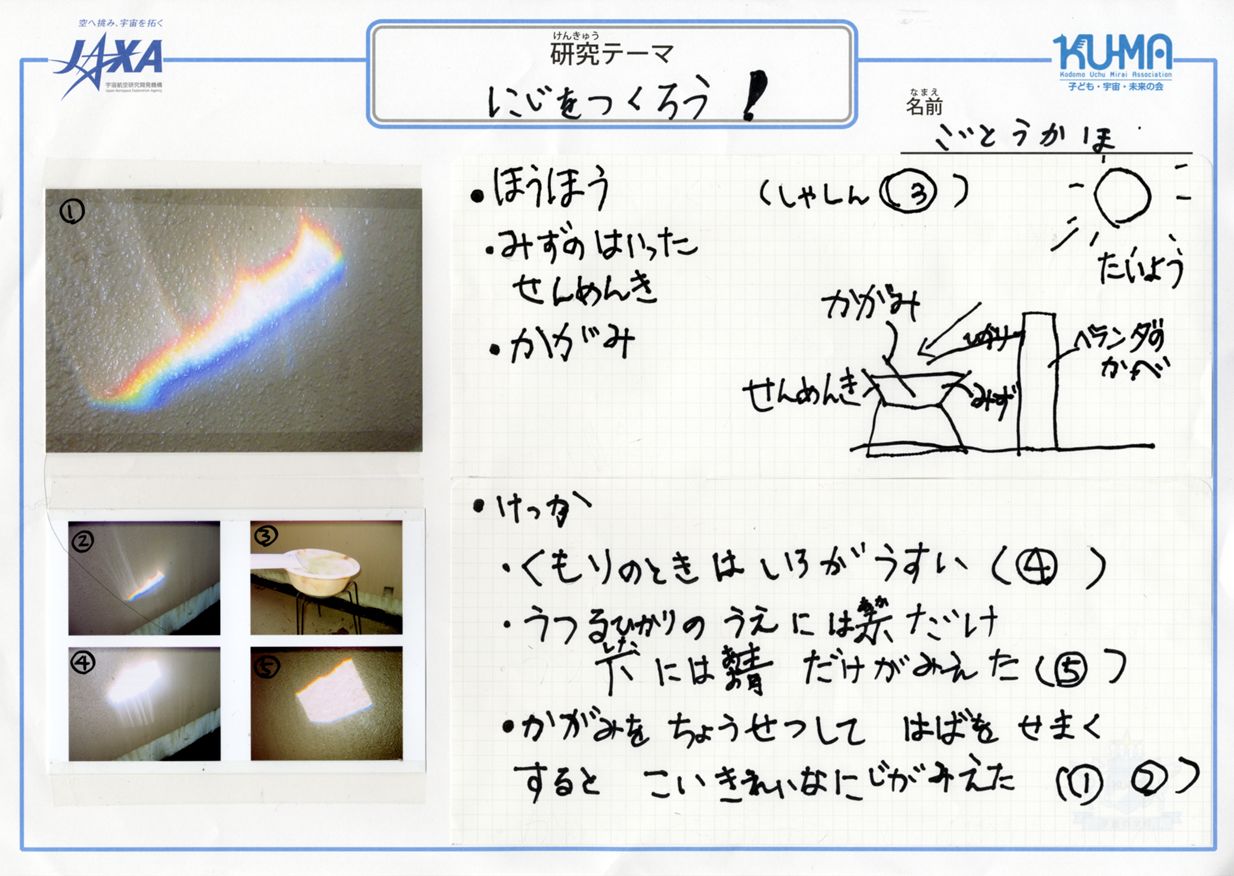 空へ挑み、宇宙を拓く
JAXA
宇宙航空研究開発機構
Japan Aerospace Exploration Agency
けんきゅう
研究テーマ
にじをつくろう!
KU-MA
Kodomo Uchu Mirai Association
子ども・宇宙・未来の会
なまえ
名前
ごとうかほ
①
・ほうほう (しゃしん③)
・みずのはいった
せんめんき
・かがみ
たいよう
かがみ
ひかり
ベランダの
かべ
せんめんき
みず
②
③
④
⑤
・けっか
・くもりのときはいろがうすい(④)
・うつるひかりのうえには赤だけ
した
下には青だけがみえた(⑤)
・かがみをちょうせつして はばをせまく
すると こいきれいなにじがみえた (① ②)